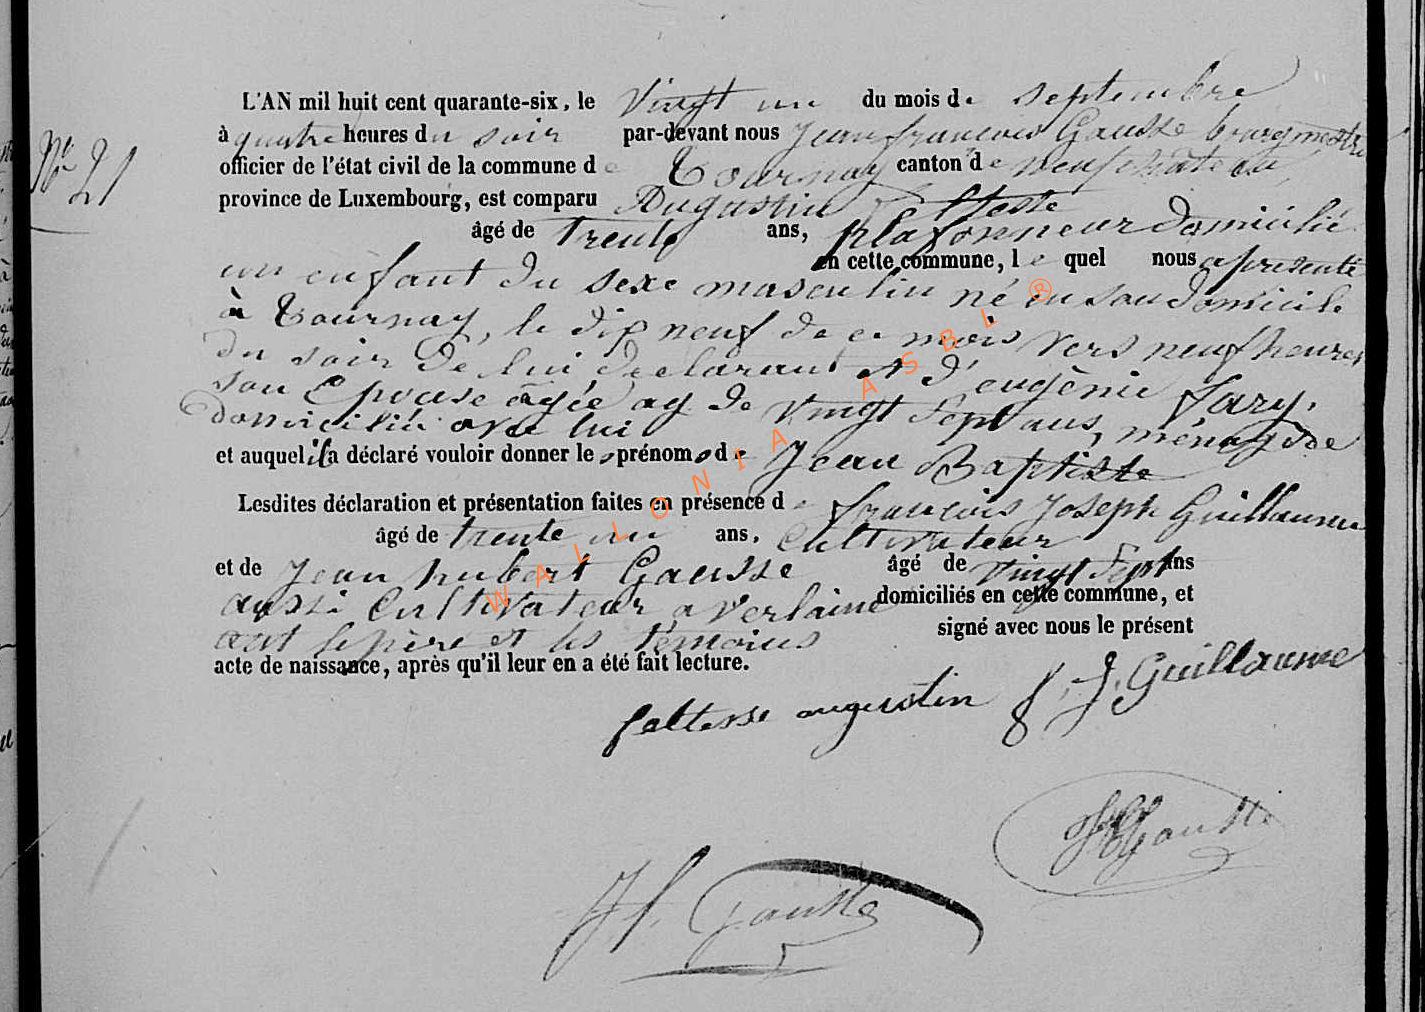 Nº 21
L'AN mil huit cent quarante-six, le vingt un du mois de septembre
à quatre heures du soir par-devant nous Jean françois Gausse bourgmestre
officier de l'état civil de la commune de Tournay canton de neufchâteau
province de Luxembourg, est comparu Augustin
âgé de trente ans, plafonneur domicilié
en cette commune, le quel nous a présenté
un enfant du sexe masculin né en son domicile
à Tournay, le dix neuf de ce mois vers neuf heures
du soir de lui déclarant et d'eugénie Jary,
son Epouse âgée ag de vingt sept ans, ménagère
domiciliée avec lui
et auquel il a déclaré vouloir donner les prénoms de Jean Baptiste
Lesdites déclaration et présentation faites en présence de françois Joseph Guillaume
âgé de trente un ans, cultivateur
et de Jean hubert Gausse âgé de vingt sept ans
aussi Cultivateur a Verlaine domiciliés en cette commune, et
ont le père et les témoins signé avec nous le présent
acte de naissance, après qu'il leur en a été fait lecture.
feltesse augustin f. J. Guillaume
JH Gausse
J f. Gausse
WALLONIA ASBL ®